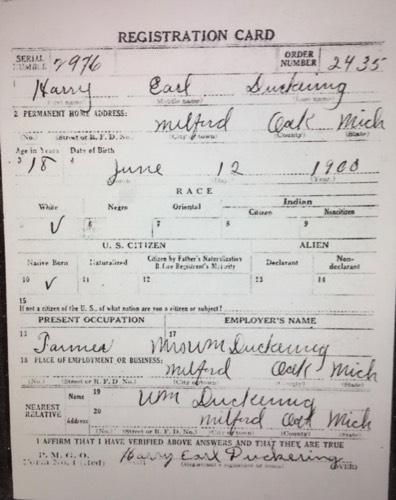 REGISTRATION CARD
SERIAL NUMBER 2976 ORDER NUMBER 2435
1 Harry Earl Duckering
(First name) (Middle name) (Last name)
2 PERMANENT HOME ADDRESS:
Milford Oak Mich
(No.) (Street or R. F. D. No.) (City or town) (County) (State)
Age in Years Date of Birth
3 18 4 June 12 1900
(Month) (Day) (Year)
RACE
White Negro Oriental Indian
Citizen Noncitizen
5 ✓ 6 7 8 9
U. S. CITIZEN ALIEN
Native Born Naturalized Citizen by Father's Naturalization Before Registrant's Majority Declarant Non-declarant
10 ✓ 11 12 13 14
15
If not a citizen of the U. S., of what nation are you a citizen or subject?
PRESENT OCCUPATION EMPLOYER'S NAME
16 Farmer 17 Wm Duckering
18 PLACE OF EMPLOYMENT OR BUSINESS:
Milford Oak Mich
(No.) (Street or R. F. D. No.) (City or town) (County) (State)
NEAREST RELATIVE Name 19 Wm Duckering
Address 20 Milford Oak Mich
(No.) (Street or R. F. D. No.) (City or town) (County) (State)
I AFFIRM THAT I HAVE VERIFIED ABOVE ANSWERS AND THAT THEY ARE TRUE
P. M. G. O.
Form No. 1 (Red) Harry Earl Duckering
(Registrant's signature or mark) (OVER)